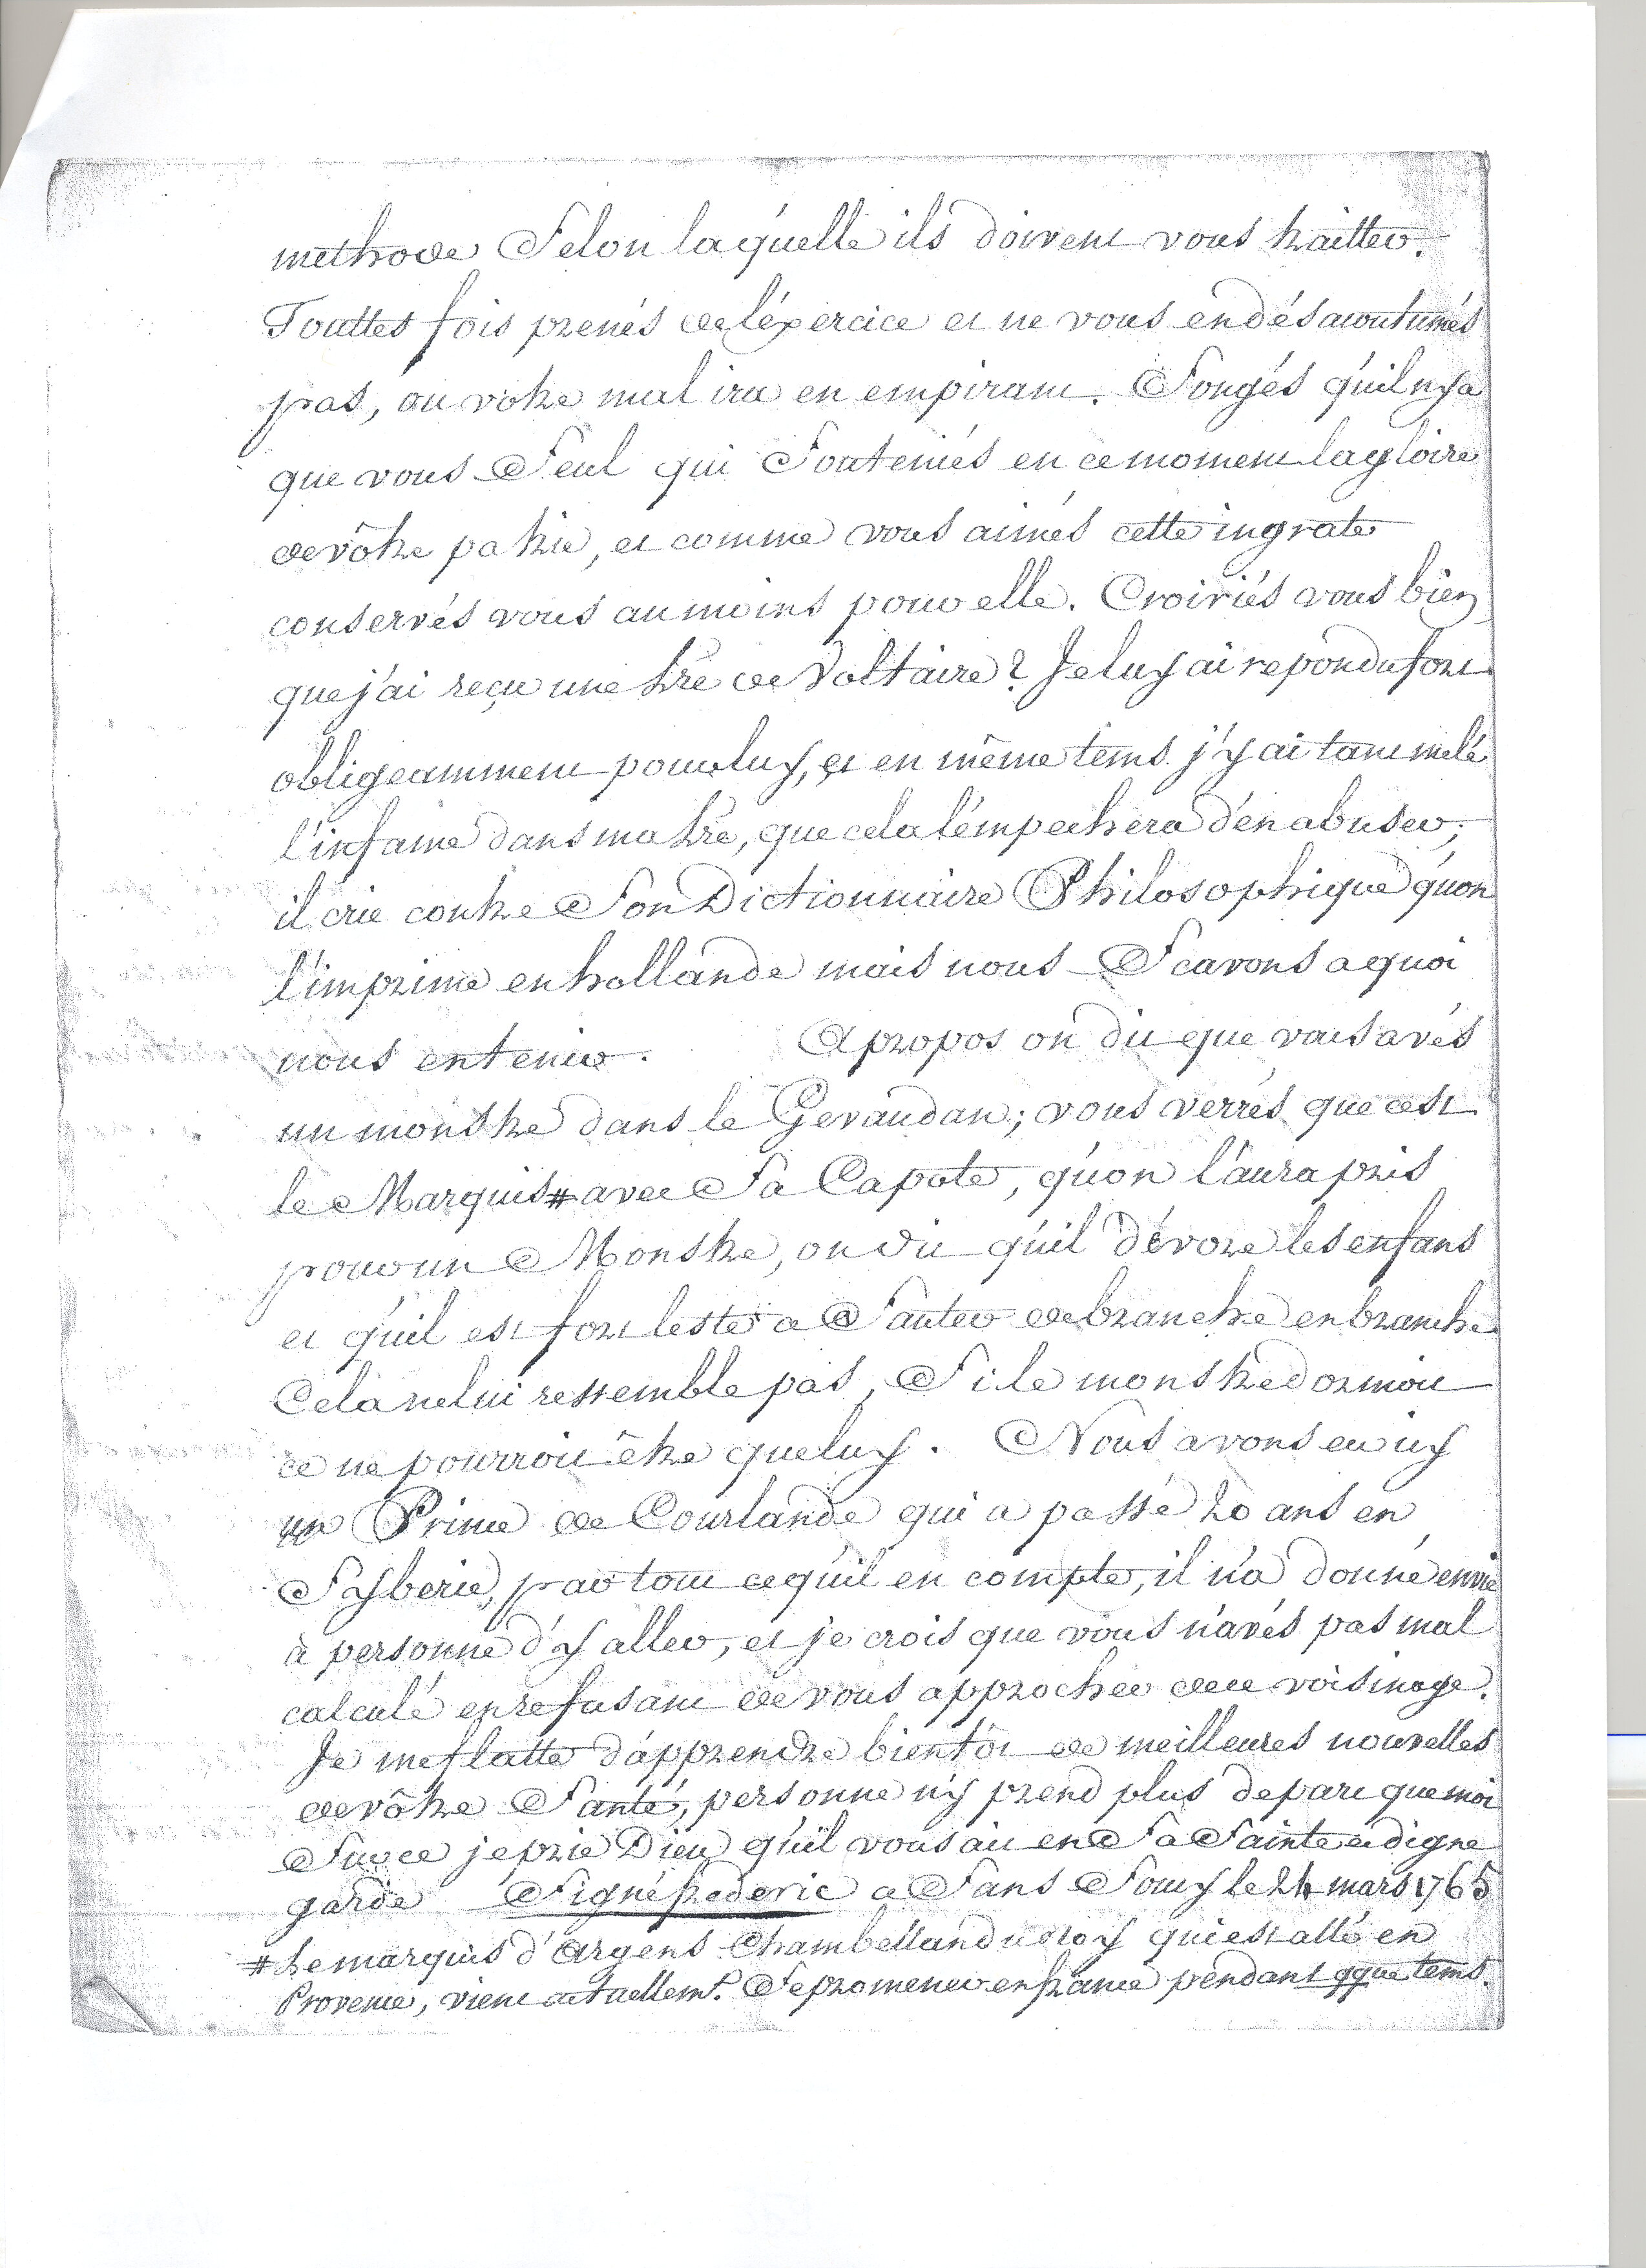 methode Selon laq'uelle ils doivent vous traitter.
Touttes fois prenés de l'éxercice et ne vous en désacoutumés
pas, ou votre mal ira en empirant. Songés q'uil n'y a
que vous Seul qui Souteniés en ce moment la gloire
de vôtre patrie, et comme vous aimés cette ingrate
conservés vous au moins pour elle. Croiriés vous bien
que j'ai reçu une Lre de Voltaire? Je luy ai repondu fort
obligeamment pour luy, et en même tems j'y ai tant melé
l'infame dans ma Lre, que cela l'empechera d'en abuser;
il crie contre Son Dictionnaire Philosophique q'uon
l'imprime en hollande mais nous Scavons a quoi
nous en tenir. A propos on dit que vous avés
un monstre dans le Gevaudan; vous verrés que cest
le Marquis # avec Sa Capote, q'uon l'aura pris
pour un Monstre, on dit q'uil dévore les enfans
et q'uil est fort leste a Sauter de branche en branche
Cela ne lui ressemble pas, Si le monstre dormoit
ce ne pourroit être que luy. Nous avons eu icy
un Prince de Courlande qui a passé 20 ans en
Syberie, par tout ce q'uil en compte, il n'a donné envie
à personne d'y aller, et je crois que vous n'avés pas mal
calculé en refusant de vous approcher de ce voisinage.
Je me flatte d'apprendre bientôt de meilleures nouvelles
de vôtre Santé, personne n'y prend plus de part que moi
Sur ce je prie Dieu q'uil vous ait en Sa Sainte et digne
garde Signé frederic a Sans Soucy le 24 mars 1765
# Le marquis d'Argens Chambelland du roy qui est allé en
Provence, vient actuellemt. Se promener en france pendant qque tems.